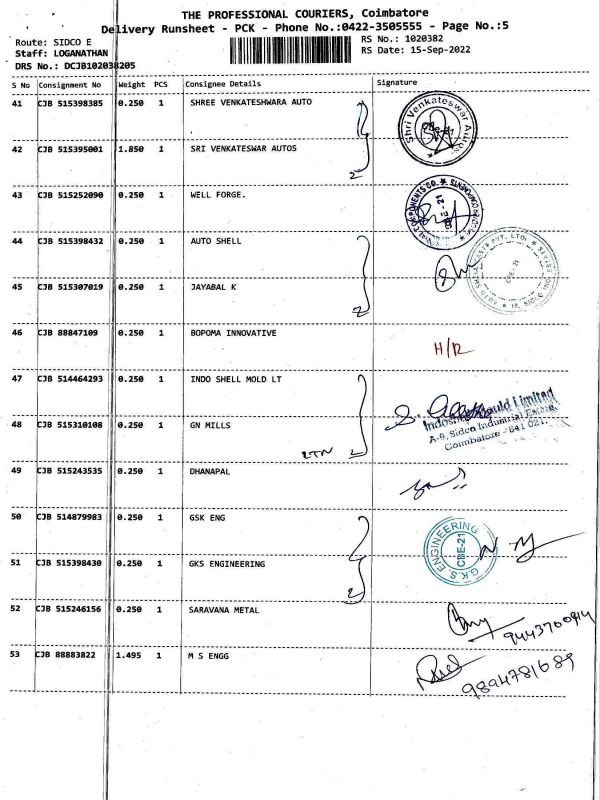 THE PROFESSIONAL COURIERS, Coimbatore
Delivery Runsheet - PCK - Phone No.:0422-3505555 - Page No.:5
Route: SIDCO E
RS No.: 1020382
Staff: LOGANATHAN
RS Date: 15-Sep-2022
DRS No.: DCJB102038205
S No Consignment No Weight PCS Consignee Details Signature
41 CJB 515398385 0.250 1 SHREE VENKATESHWARA AUTO
Shri Venkateswar Autos
42 CJB 515395001 1.850 1 SRI VENKATESWAR AUTOS
2
43 CJB 515252090 0.250 1 WELL FORGE.
44 CJB 515398432 0.250 1 AUTO SHELL
45 CJB 515307019 0.250 1 JAYABAL K
2
46 CJB 88847109 0.250 1 BOPOMA INNOVATIVE
H/R
47 CJB 514464293 0.250 1 INDO SHELL MOLD LT
Indoshell Mould Limited
A-9, Sidco Industrial Estate,
Coimbatore - 641 021.
48 CJB 515310108 0.250 1 GN MILLS
2
49 CJB 515243535 0.250 1 DHANAPAL
50 CJB 514879983 0.250 1 GSK ENG
G.K.S. ENGINEERING
CBE-21
51 CJB 515398430 0.250 1 GKS ENGINEERING
2
52 CJB 515246156 0.250 1 SARAVANA METAL
53 CJB 88883822 1.495 1 M S ENGG
9894781689